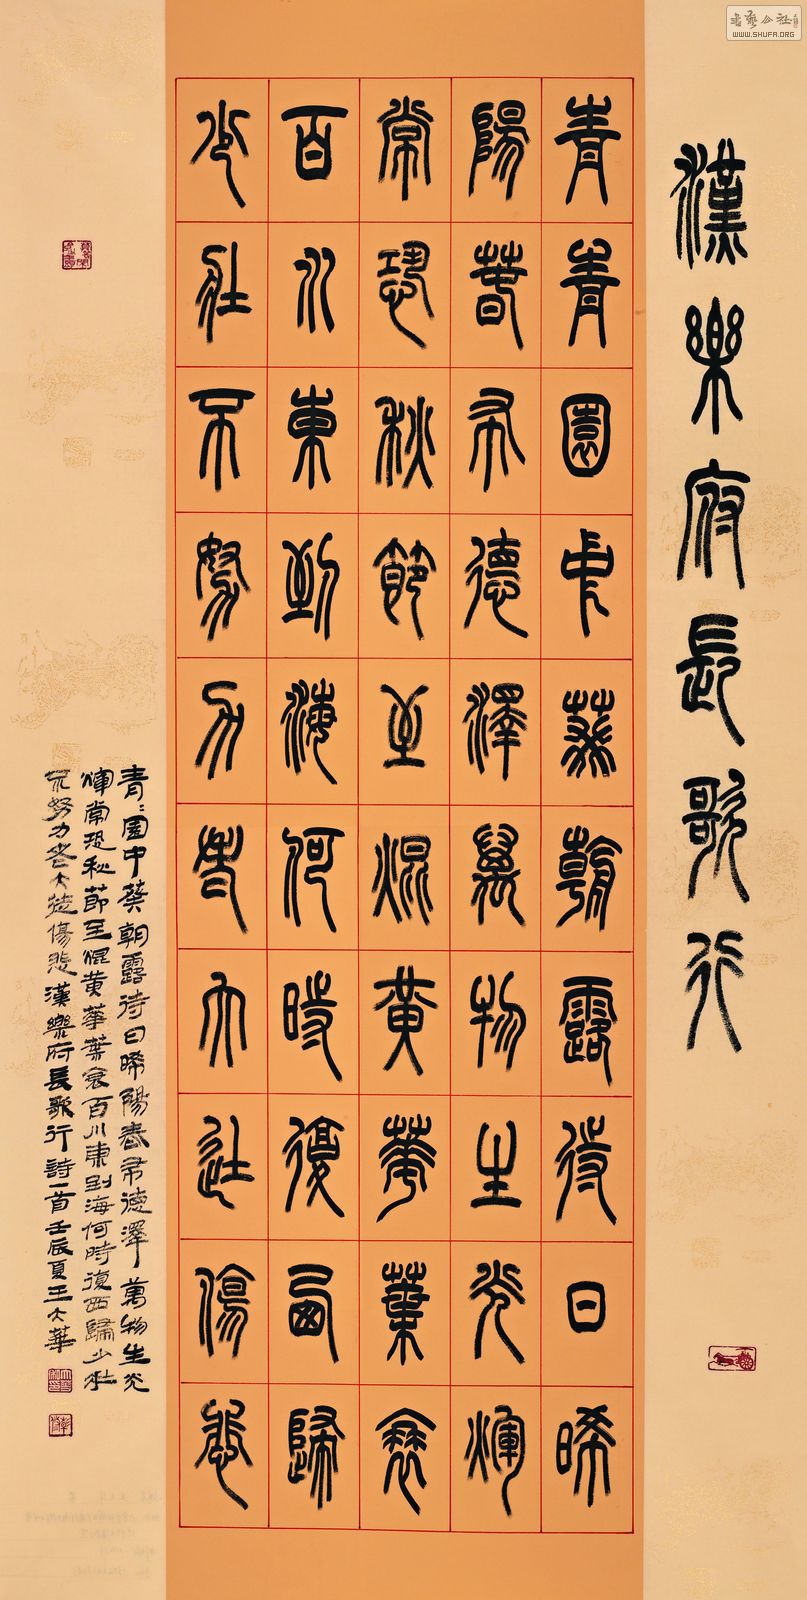 書藝公社
WWW.SHUFA.ORG
漢樂府長歌行
青青園中葵朝露待日晞
陽春布德澤萬物生光煇
常恐秋節至焜黃華葉衰
百川東到海何時復西歸
少壯不努力老大徒傷悲
青〻園中葵朝露待日晞陽春布德澤萬物生光
煇常恐秋節至焜黃華葉衰百川東到海何時復西歸少壯
不努力老大徒傷悲漢樂府長歌行詩一首壬辰夏王大華